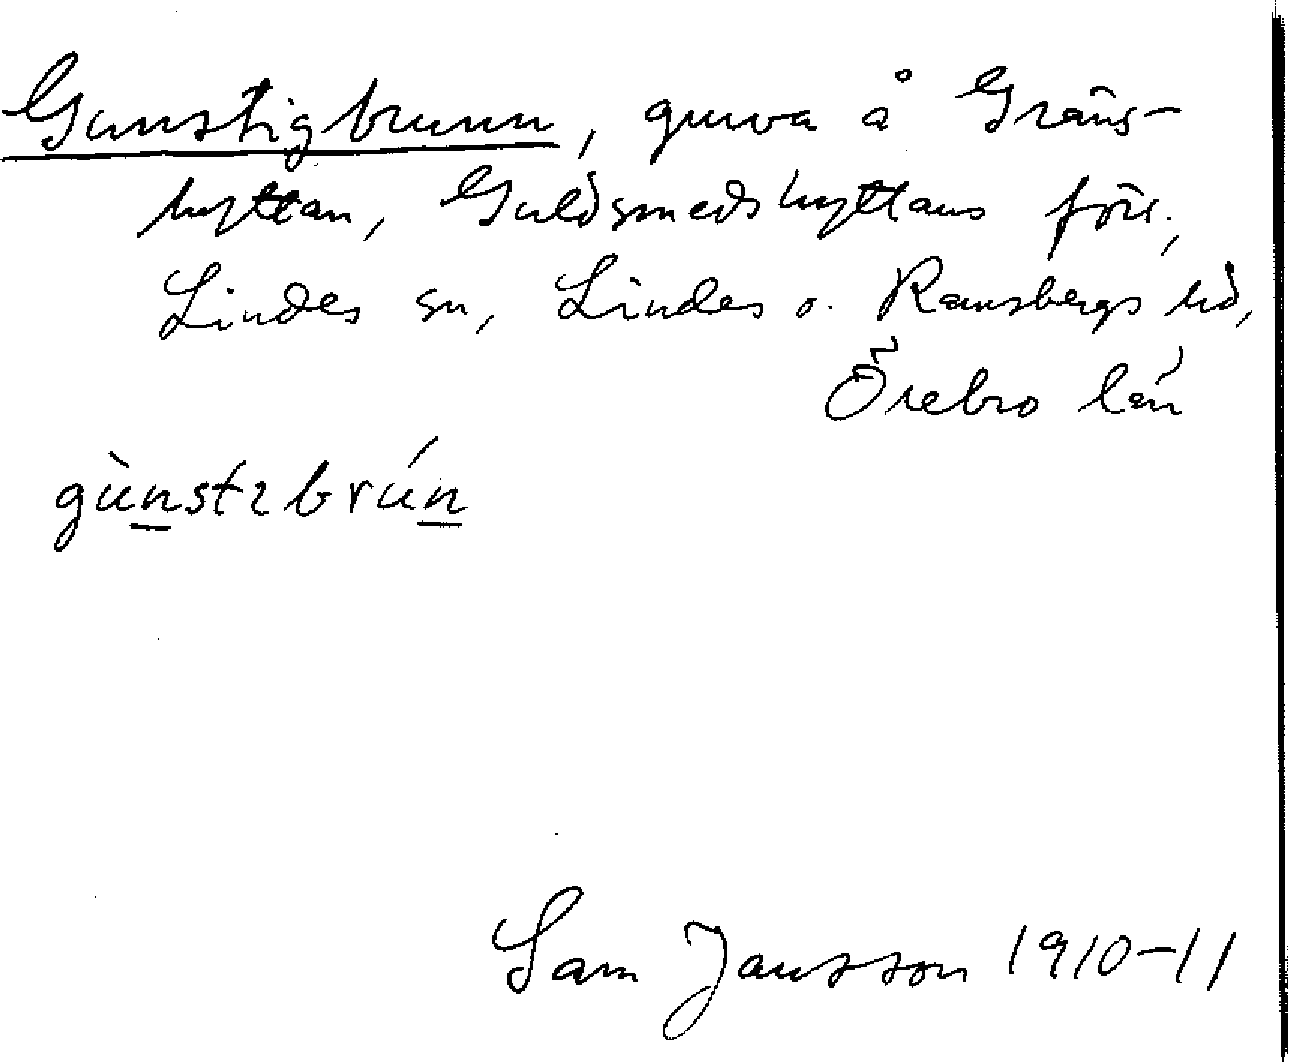 Gunstigbrunn, gruva å Gräns-
hyttan, Guldsmedshyttans förs.,
Lindes sn, Lindes o. Ramsbergs hd,
Örebro län
gùnstɩbrún
Sam Jansson 1910-11